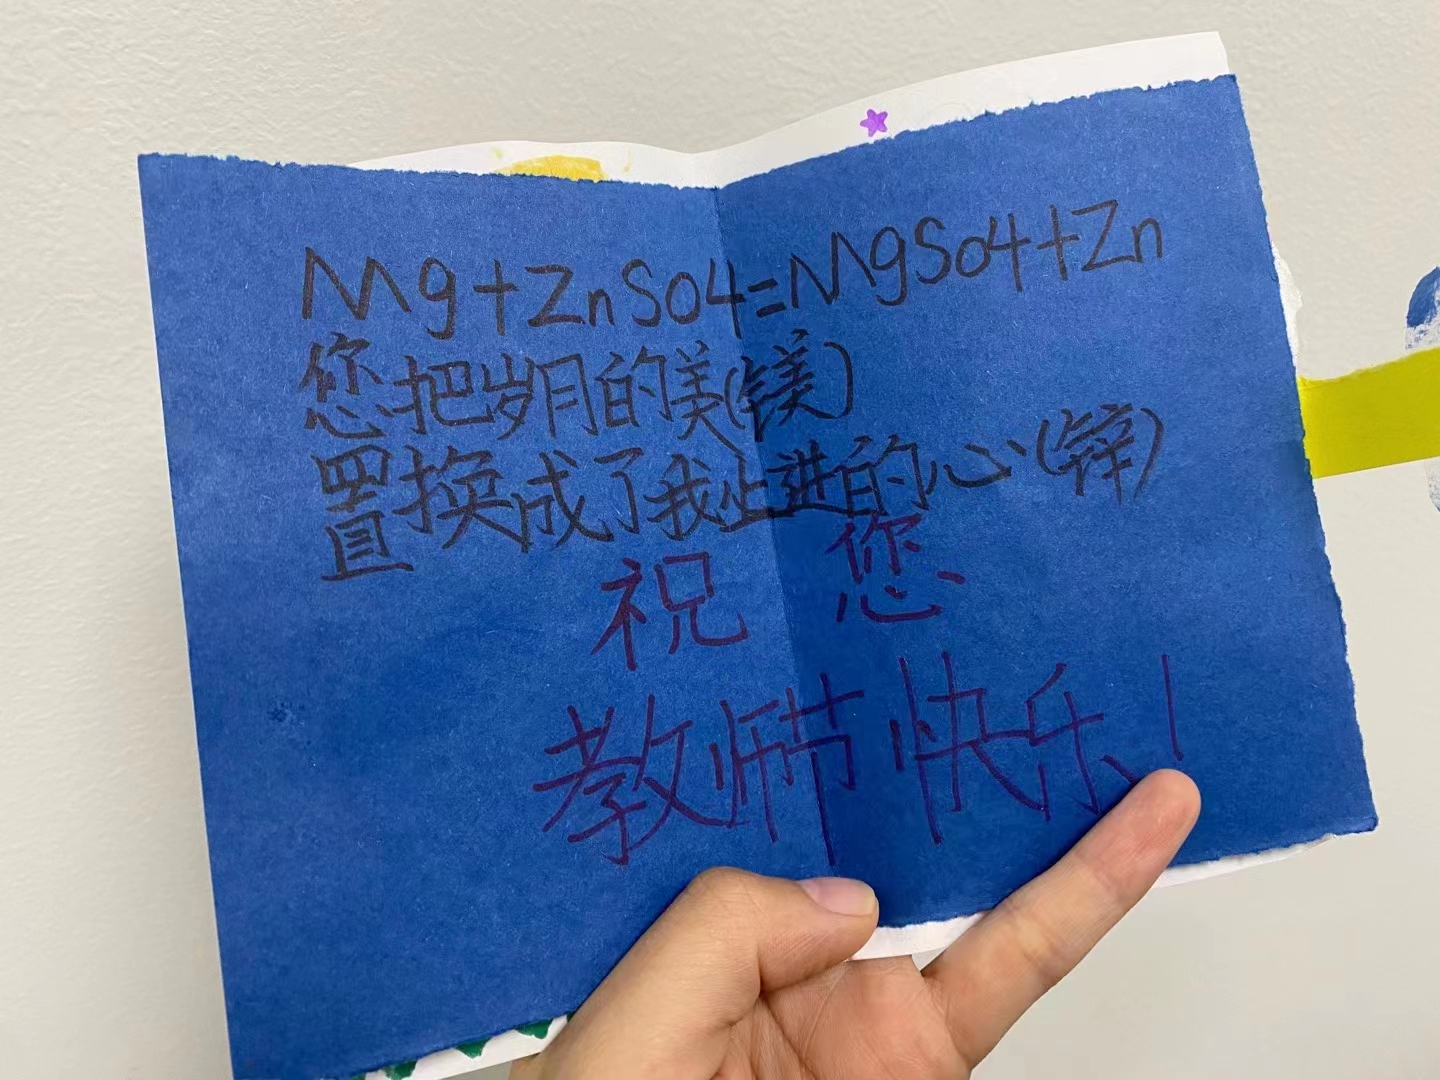 Mg+ZnSO4=MgSO4+Zn
您把岁月的美(镁)
置换成了我上进的心(锌)
祝 您
教师节快乐!